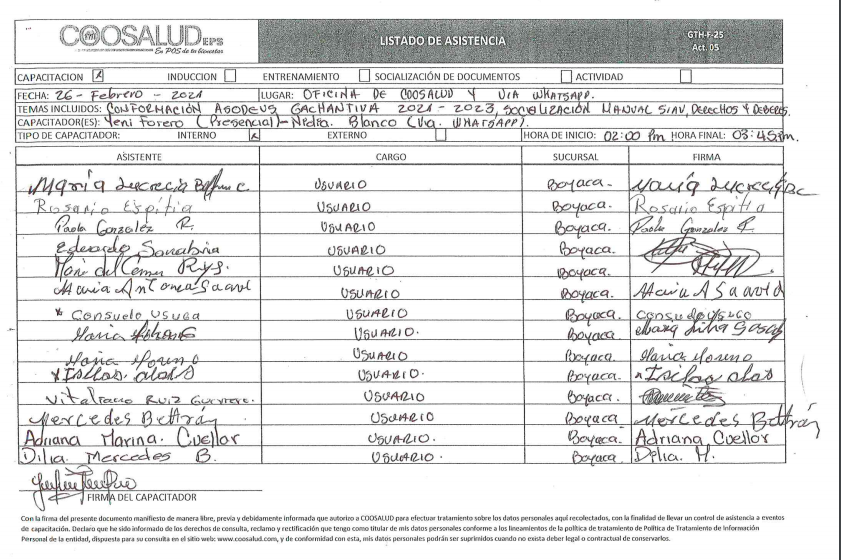 COOSALUD EPS
En POS de tu bienestar
LISTADO DE ASISTENCIA
GTH-F-25
Act. 05
CAPACITACION X INDUCCION ENTRENAMIENTO SOCIALIZACIÓN DE DOCUMENTOS ACTIVIDAD
FECHA: 26 - Febrero - 2021 LUGAR: OFICINA DE COOSALUD Y VIA WHATSAPP.
TEMAS INCLUIDOS: CONFORMACIÓN ASODEUS GACHANTIVA 2021 - 2023, SOCIALIZACIÓN MANUAL SIAU, DERECHOS Y DEBERES.
CAPACITADOR(ES): Yeni Forero (Presencial) - Nidia. Blanco (Via. WHATSAPP).
TIPO DE CAPACITADOR: INTERNO X EXTERNO HORA DE INICIO: 02:00 Pm HORA FINAL: 03:45 pm.
ASISTENTE CARGO SUCURSAL FIRMA
Maria Lucrecia C. USUARIO Boyaca. Maria Lucrecia
Rosario Espitia USUARIO Boyaca. Rosario Espitia
Paola Gonzalez R. USUARIO Boyaca. Paola Gonzalez R.
Eduardo Sanabria USUARIO Boyaca.
Mari del Carmen USUARIO Boyaca.
Maria Antonia USUARIO Boyaca. Maria A
* Consuelo USUARIO Boyaca. Consuelo
Maria USUARIO. Boyaca.
Maria Moreno USUARIO Boyaca. Maria Moreno
USUARIO. Boyaca.
Vitaliano Ruiz Guerrero. USUARIO Boyaca.
Mercedes Beltrán USUARIO Boyaca. Mercedes Beltrán
Adriana Marina. Cuellar USUARIO. Boyaca. Adriana Cuellar
Dilia. Mercedes B. USUARIO. Boyaca. Dilia. M.
FIRMA DEL CAPACITADOR
Con la firma del presente documento manifiesto de manera libre, previa y debidamente informada que autorizo a COOSALUD para efectuar tratamiento sobre los datos personales aquí recolectados, con la finalidad de llevar un control de asistencia a eventos
de capacitación. Declaro que he sido informado de los derechos de consulta, reclamo y rectificación que tengo como titular de mis datos personales conforme a los lineamientos de la política de tratamiento de Política de Tratamiento de Información
Personal de la entidad, dispuesta para su consulta en el sitio web: www.coosalud.com, y de conformidad con esta, mis datos personales podrán ser suprimidos cuando no exista deber legal o contractual de conservarlos.